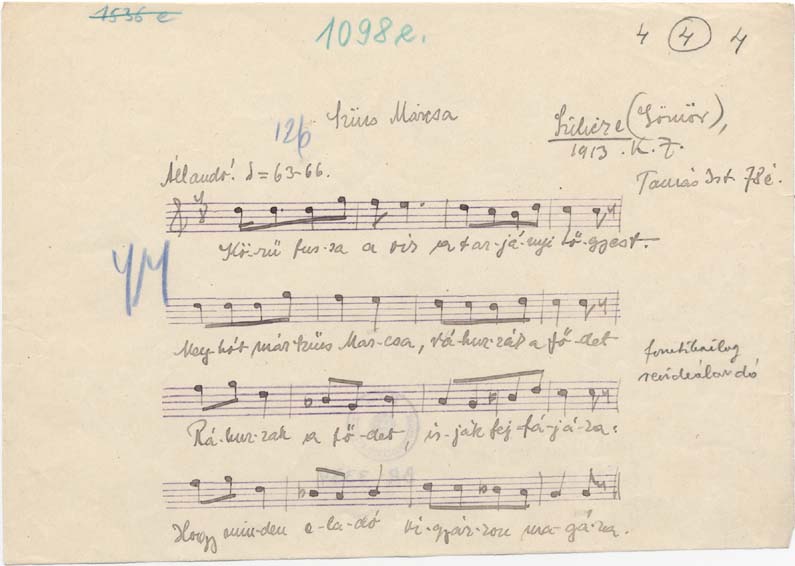 1536 e
1098 e.
4 4 4
Szűcs Márcsa
126
Szilicze (Gömör),
1913. K. Z.
Tamás Ist. 78 é.
Állandó! = 63-66.
Kö-rű fus-sa a víz a tar-já-nyi tő-gyest.
Meg-hót már Szűcs Mar-csa, rá-huz-zák a fő-det
fonetikailag
revideálandó
Rá-huz-zák a fő-det, is-ják fej-fá-já-ra:
Hogy min-den e-la-dó vi-gyáz-zon ma-gá-ra.